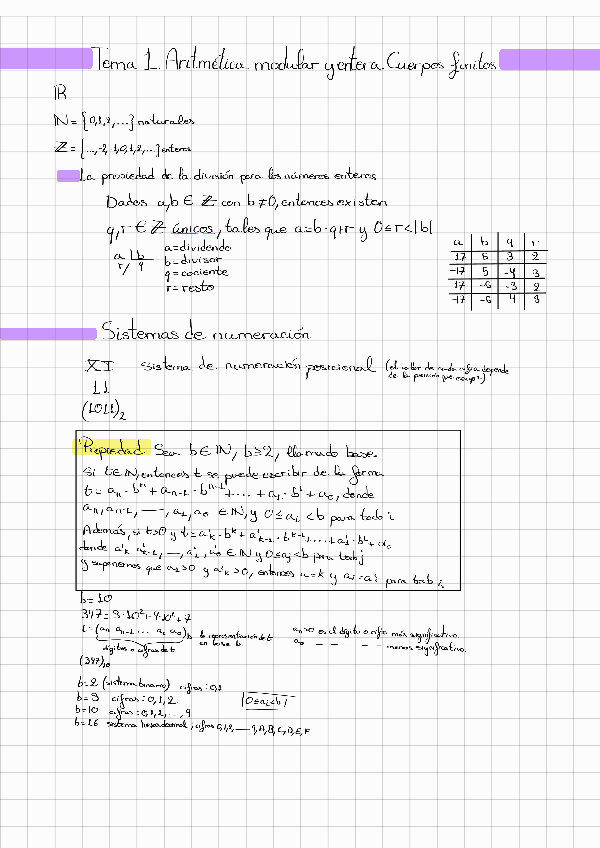 Tema 1. Aritmética modular y entera. Cuerpos finitos
ℝ
ℕ = {0,1,2,...} naturales
ℤ = {...,-2,1,0,1,2,...} enteros
La propiedad de la división para los números enteros
Dados a,b ∈ ℤ con b ≠ 0, entonces existen
q,r ∈ ℤ únicos, tales que a=b·q+r y 0≤r<|b|
a | b
r/ q
a=dividendo
b=divisor
q=cociente
r=resto
a b q r
17 5 3 2
-17 5 -4 3
17 -5 -3 2
-17 -5 4 3
Sistemas de numeración
XI sistema de numeración posicional (el valor de cada cifra depende
de la posición que ocupe)
11
(1011)₂
Propiedad Sea b∈ℕ, b≥2, llamado base.
Si t∈ℕ, entonces t se puede escribir de la forma
t = aₙ·bⁿ + aₙ₋₁·bⁿ⁻¹ + ... + a₁·b¹ + a₀, donde
aₙ, aₙ₋₁, ---, a₁, a₀ ∈ ℕ, y 0≤aᵢ<b para todo i
Además, si t>0 y t = a'ₖ·bᵏ + a'ₖ₋₁·bᵏ⁻¹ + ... + a'₁·b¹ + a'₀
donde a'ₖ, a'ₖ₋₁, —, a'₁, a'₀ ∈ ℕ y 0≤aj<b para todo j
y suponemos que aₙ>0 y a'ₖ>0, entonces n=k y aᵢ=a'ᵢ para todo i
b=10
347 = 3·10²+4·10¹+7
t = (aₙ aₙ₋₁ ... a₁ a₀)b la representación de t
en base b
dígitos o cifras de t
aₙ>0 es el dígito o cifra más significativo
a₀ — — — — menos significativo.
(347)₁₀
b=2 (sistema binario) cifras: 0,1
b=3 cifras: 0,1,2 |0≤aᵢ<b|
b=10 cifras: 0,1,2,...,9
b=16 sistema hexadecimal, cifras 0,1,2, — 9,A,B,C,D,E,F